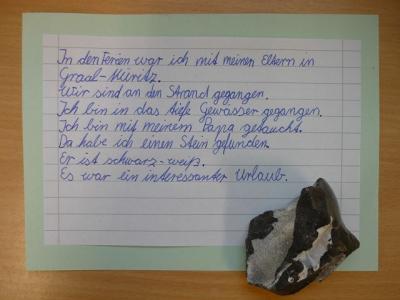 In den Ferien war ich mit meinen Eltern in
Graal-Müritz.
Wir sind an den Strand gegangen.
Ich bin in das tiefe Gewässer gegangen.
Ich bin mit meinem Papa getaucht.
Da habe ich einen Stein gefunden.
Er ist schwarz-weiß.
Es war ein interessanter Urlaub.